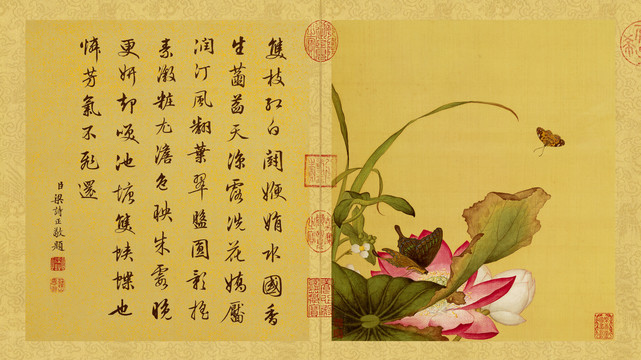 隻枝红白鬪㛹娟水國香
生菡萏天涼露洗花嬌靨
潤汀風翻葉翠盤圓影搖
素漵粧尤澹色映朱霞曉
更妍却咲池塘隻蛺蝶也
憐芳氣不飛還
臣梁詩正敬題